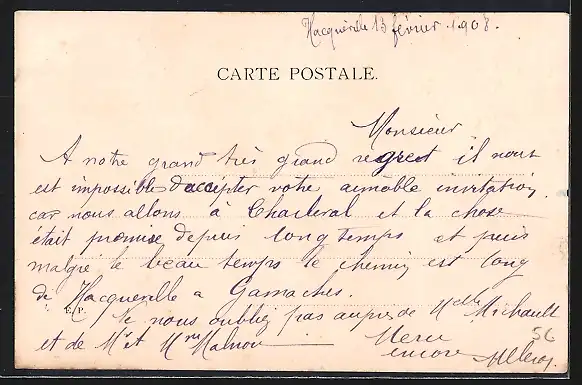 Hacqueville 13 février 1908.
CARTE POSTALE.
Monsieur
A notre grand très grand regret il nous
est impossible d'accepter votre aimable invitation
car nous allons à Charleval et la chose
était promise depuis longtemps et puis
malgré le beau temps le chemin est long
de Hacqueville a Gamaches.
E.P.
Ne nous oubliez pas auprès de Melle Michault
et de Mr et Mme
Merci
encore
56